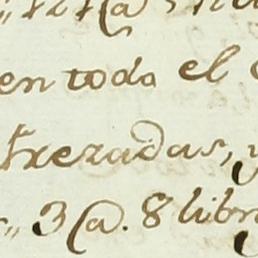 en todo el
Frezadas, y
3 @. 8 libr